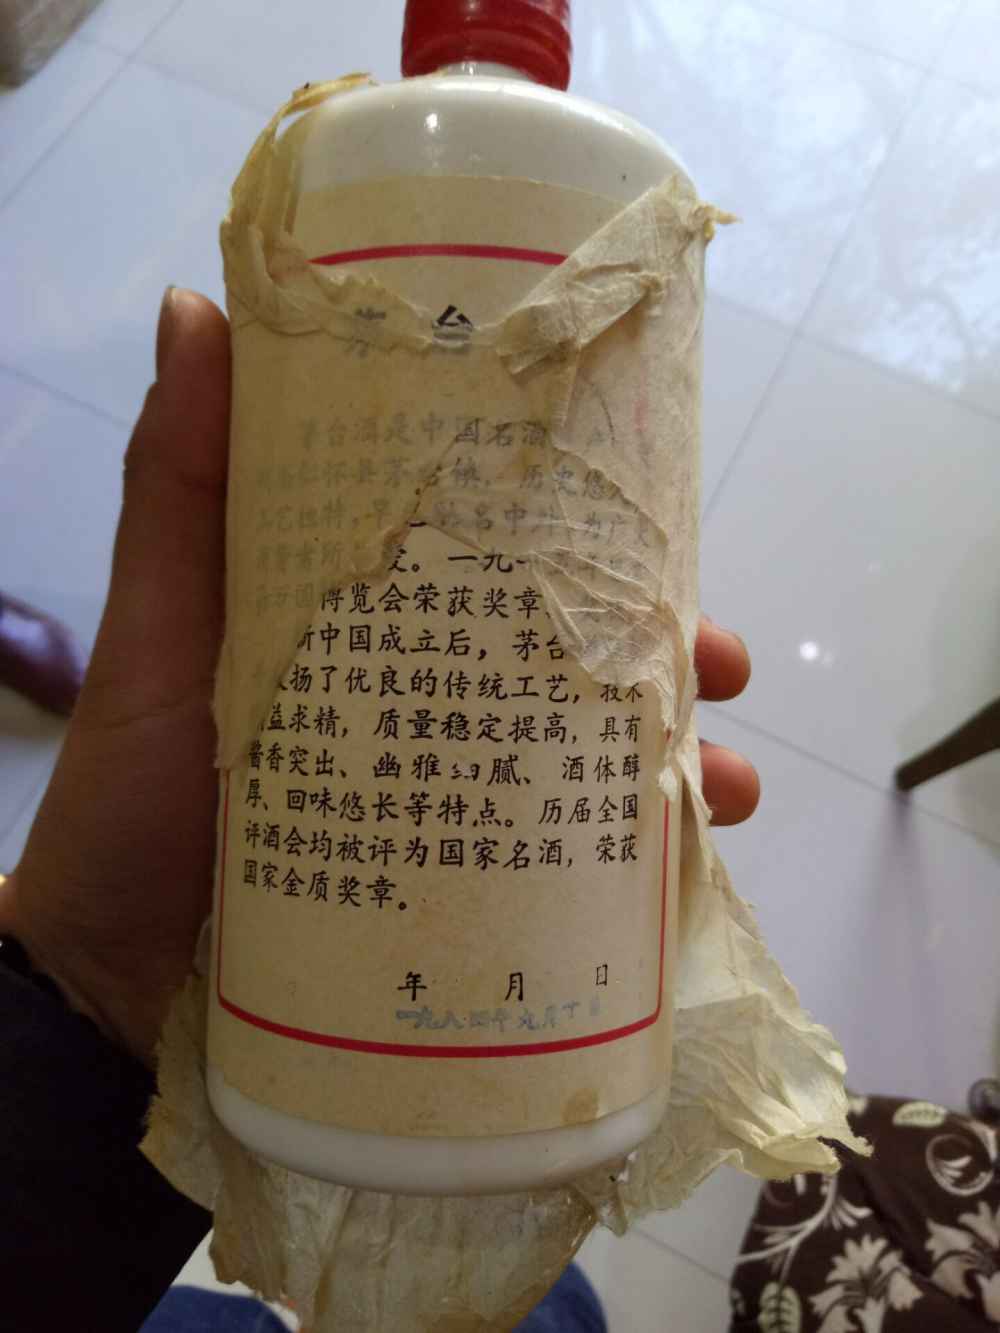 茅台
茅台酒是中国名酒
仁怀县茅台镇，历史悠
工艺独特，早 驰名中外 为广大
消费者所 爱。一九一五年
万国博览会荣获奖章
新中国成立后，茅台
发扬了优良的传统工艺，技术
精益求精，质量稳定提高，具有
酱香突出、幽雅细腻、酒体醇
厚、回味悠长等特点。历届全国
评酒会均被评为国家名酒，荣获
国家金质奖章。
年 月 日
一九八四年九月十 日